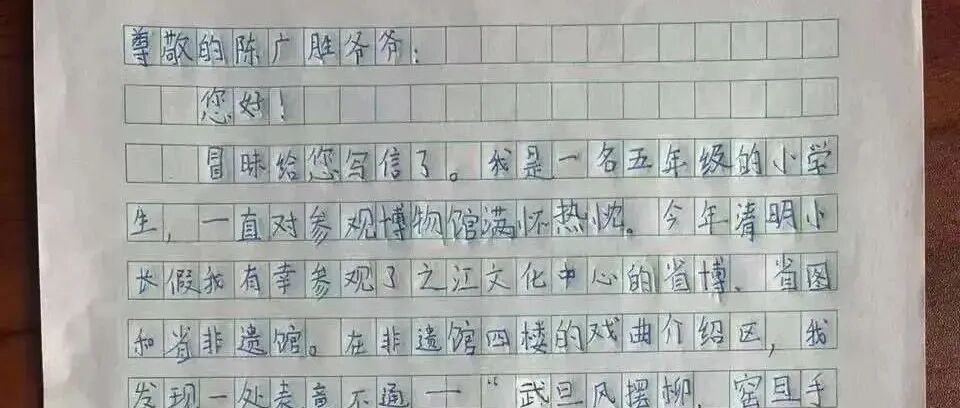 尊敬的陈广胜爷爷:
您好!
冒昧给您写信了。我是一名五年级的小学
生,一直对参观博物馆满怀热忱。今年清明小
长假我有幸参观了之江文化中心的省博、省图
和省非遗馆。在非遗馆四楼的戏曲介绍区,我
发现一处表意不通——“武旦风摆柳、窑旦手